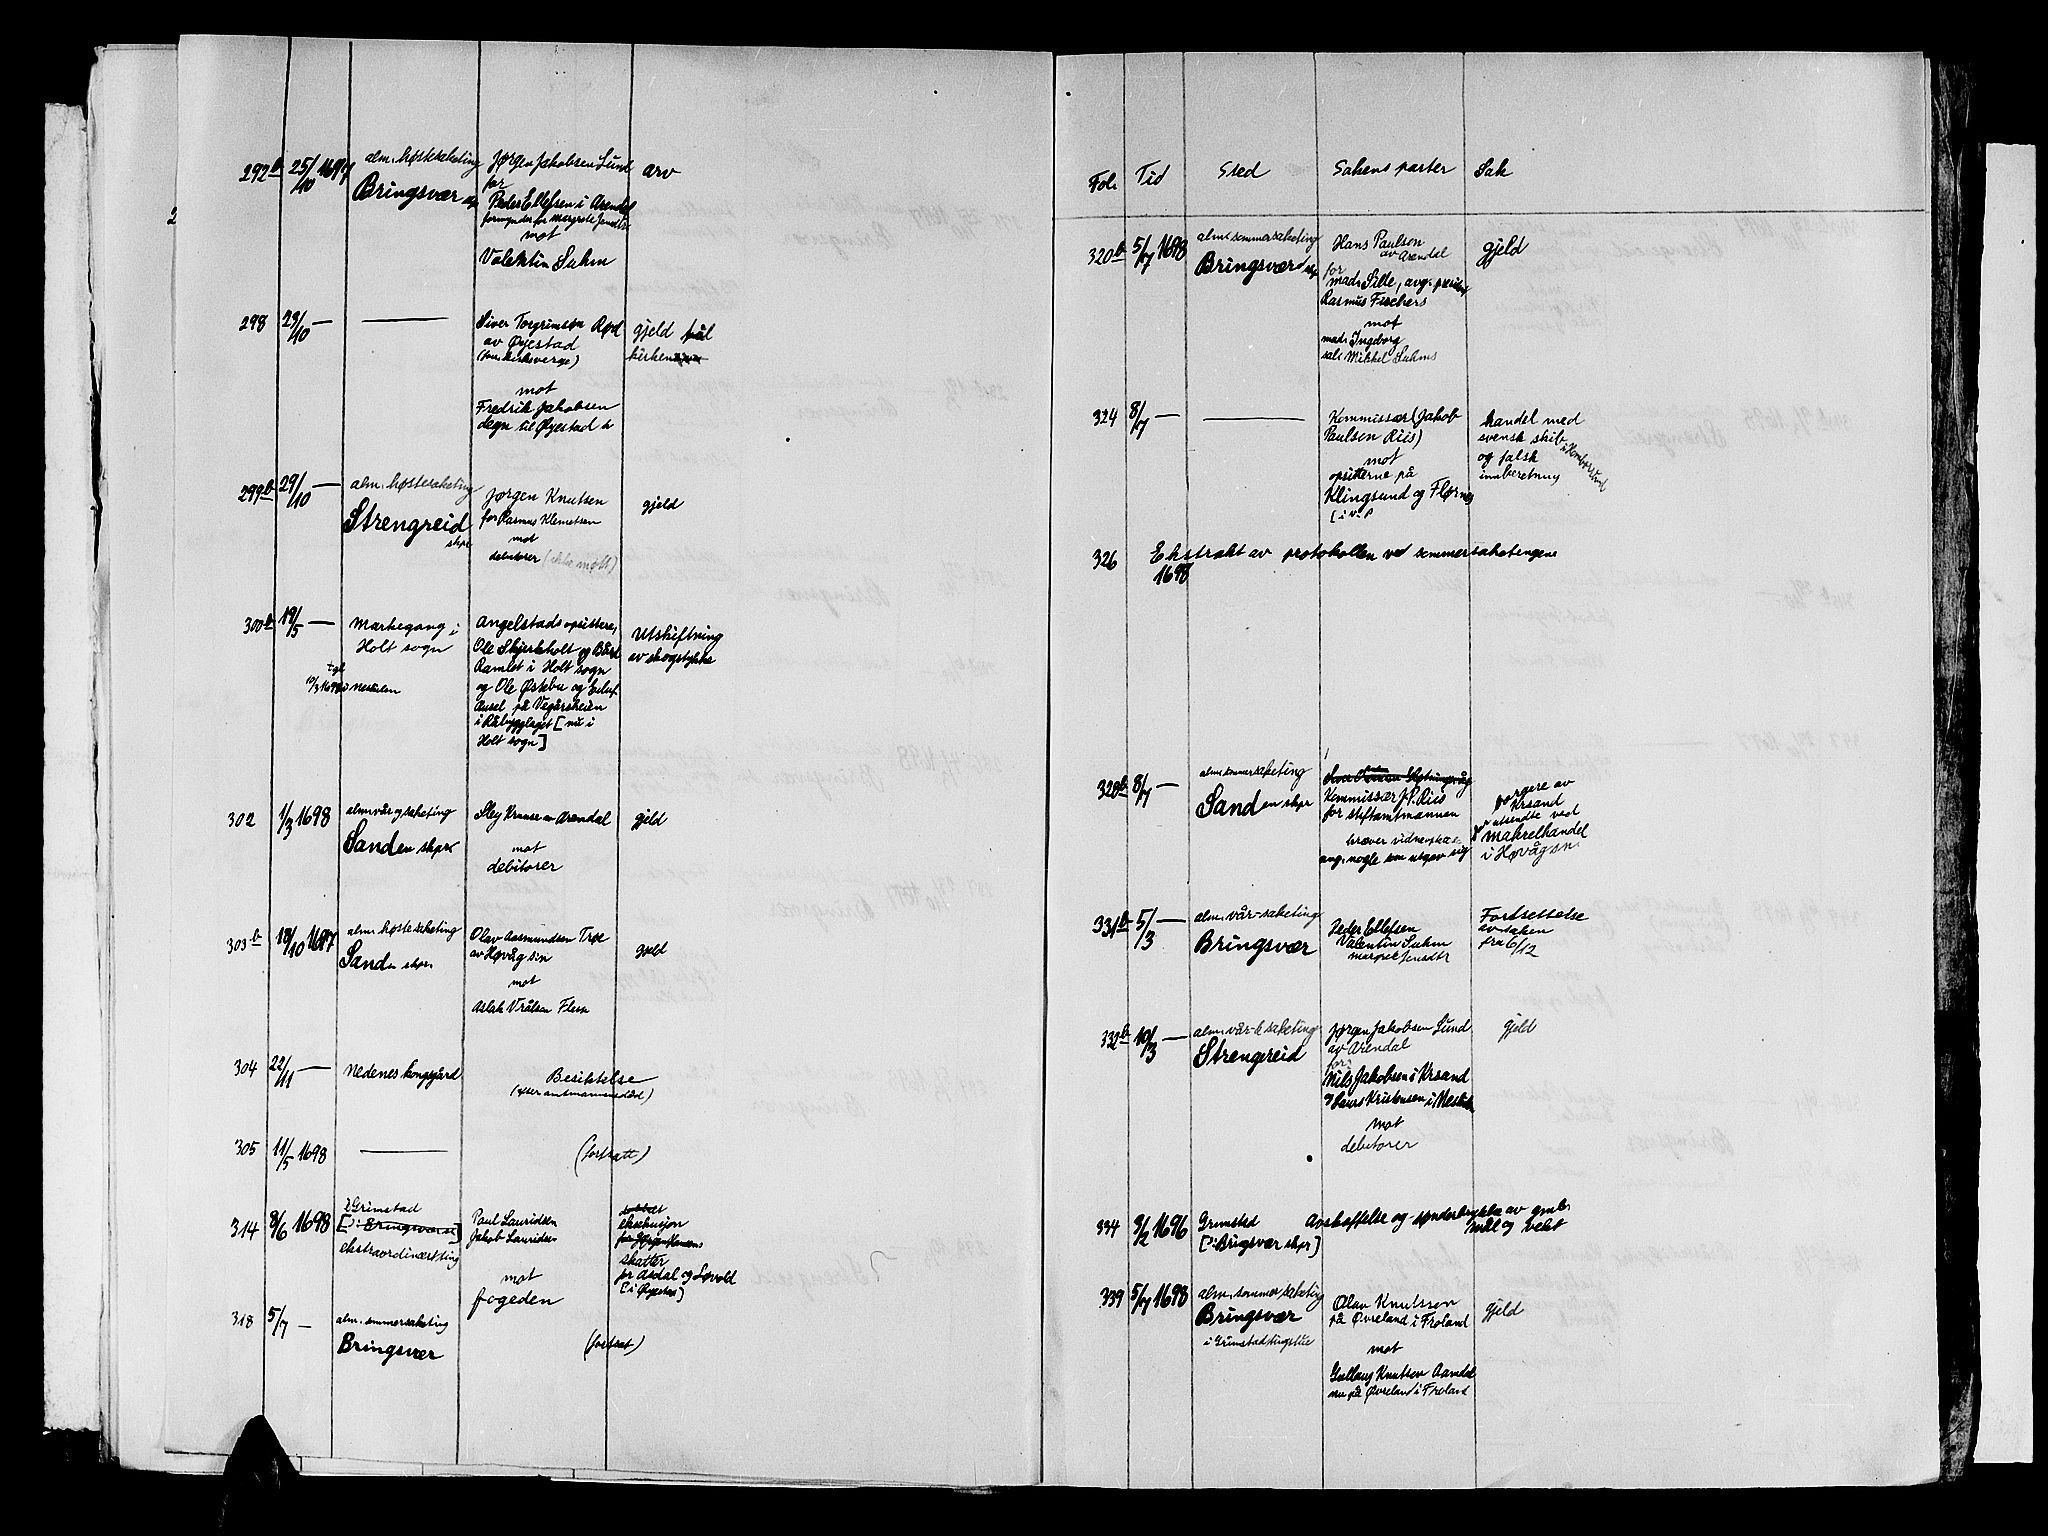 292b 25/10 1697 alm. høstesakting Jørgen Jakobsen Lund arv
for
Bringsvær skp. Peder Ellefsen i Arendal
formynder for Margrete Jensdtr
mot
Valentin Suhm
298 23/10 — — Siver Torgrimsøn Rød gjeld
av Øyestad
(som kirkeverge) kirken
mot
Fredrik Jakobsen
degn til Øyestad
299b 29/10 — alm. høstesakting Jørgen Knutsen gjeld
Strengereid skpr for Rasmus Klemetsen
mot
debitorer (ikke møtt)
300b 19/5 — Markegang i Angelstads opsittere, Utskiftning
Holt sogn Ole Skjerkholt og Bård av skogstykke
Ramlet i Holt sogn
og Ole Østebu og
Ausel på Vegårsheien
i Råbyggelaget [nu i
Holt sogn]
302 1/3 1698 alm. vårsakting Sley Kruuse av Arendal gjeld
Sanden skpr mot
debitorer
303b 18/10 1697 alm. høstesakting Olav Aasmundsen Trøe gjeld
Sanden skpr. av Høvåg sn
mot
Aslak Vrålsen
304 22/11 — Nedenes kongsgård Besiktelse
(efter amtmannens død)
305 11/5 1698 — (fortsatt)
314 8/6 1698 i Grimstad
[ɔ: Bringsvær] Paul Lauridsen eksekusjon
ekstraordinært ting Jakob Lauridsen for
skatter
mot for Asdal og Løvold
fogeden [i Øyestad]
318 5/7 — alm. sommersakting
Bringsvær (fortsat)
Fol. Tid Sted Sakens parter Sak
320b 5/7 1698 alm. sommersakting Hans Paulson gjeld
Bringsvær skp av Arendal
for
mad. Sille, avg.
Rasmus Fischers
mot
mad. Ingeborg
sal. Mikkel Suhms
324 8/7 — — Kommissær (Jakob handel med
Paulsen Riis) svensk skib
mot og falsk
opsitterne på innberetning
Klingsund og
326 Ekstrakt av protokollen ved sommersaketingene
1698
320b 8/7 — alm. sommersakting
Sanden skpr Kommissær J.P. Riis borgere av
for stiftamtmannen Krsand
kræver vidnespråk utsendte ved
ang. nogle som utgav sig makrelhandel
i Høvåg sn.
331b 5/3 — alm. vår-saketing Peder Ellefsen Fortsettelse
Bringsvær Valentin Suhm av saken
Margrete Jensdtr fra 6/12
332b 10/3 — alm. vår-saketing Jørgen Jakobsen Lund gjeld
Strengereid av Arendal
for:
Nils Jakobsen i Krsand
Laurs Kristensen i
mot
debitorer
334 9/2 1696 Grimstad Avskaffelse og sønderbrytelse av gml.
[ɔ: Bringsvær skpr] mål og vekt
339 5/7 1698 alm. sommersakting Olav Knutsson gjeld
Bringsvær på Øvreland i Froland
i Grimstad tingstue
mot
Gullaug Knutsen Aamdal
nu på Øvreland i Froland